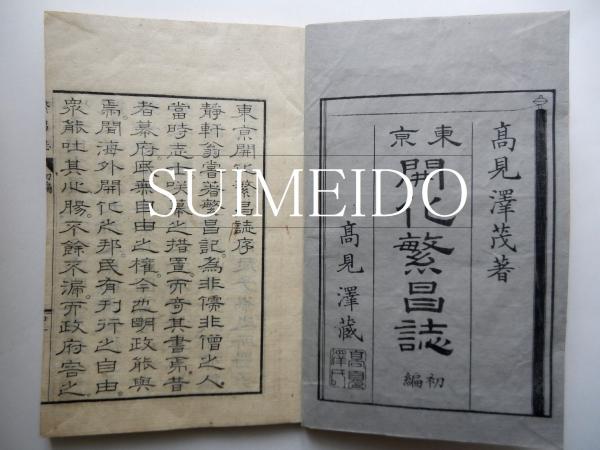 高見澤茂著
東京
開化繁昌誌
初編
高見澤藏
東京開化繁昌誌序
靜軒翁嘗著繁昌記。為非儒非僧之人
當時志。咲幕之措置。而奇其書焉。昔
者幕府。民無自由之權。今也明政能與
焉。聞海外開化之邦。民有刊行之自由。
衆能吐其心腸。不餘不漏。而政府容之
SUIMEIDO